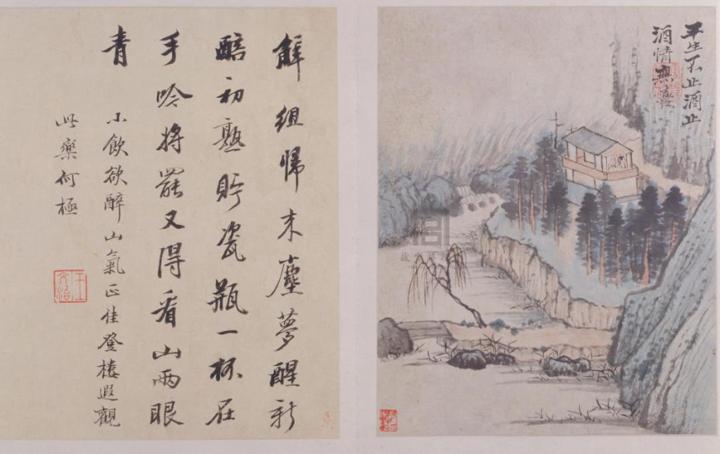 平生不止酒止
酒情無喜
解組歸来塵夢醒新
醅初熟貯瓷瓶一杯在
手吟將罷又得看山兩眼
青
小飲欲醉山氣正佳登樓遐觀
此樂何極